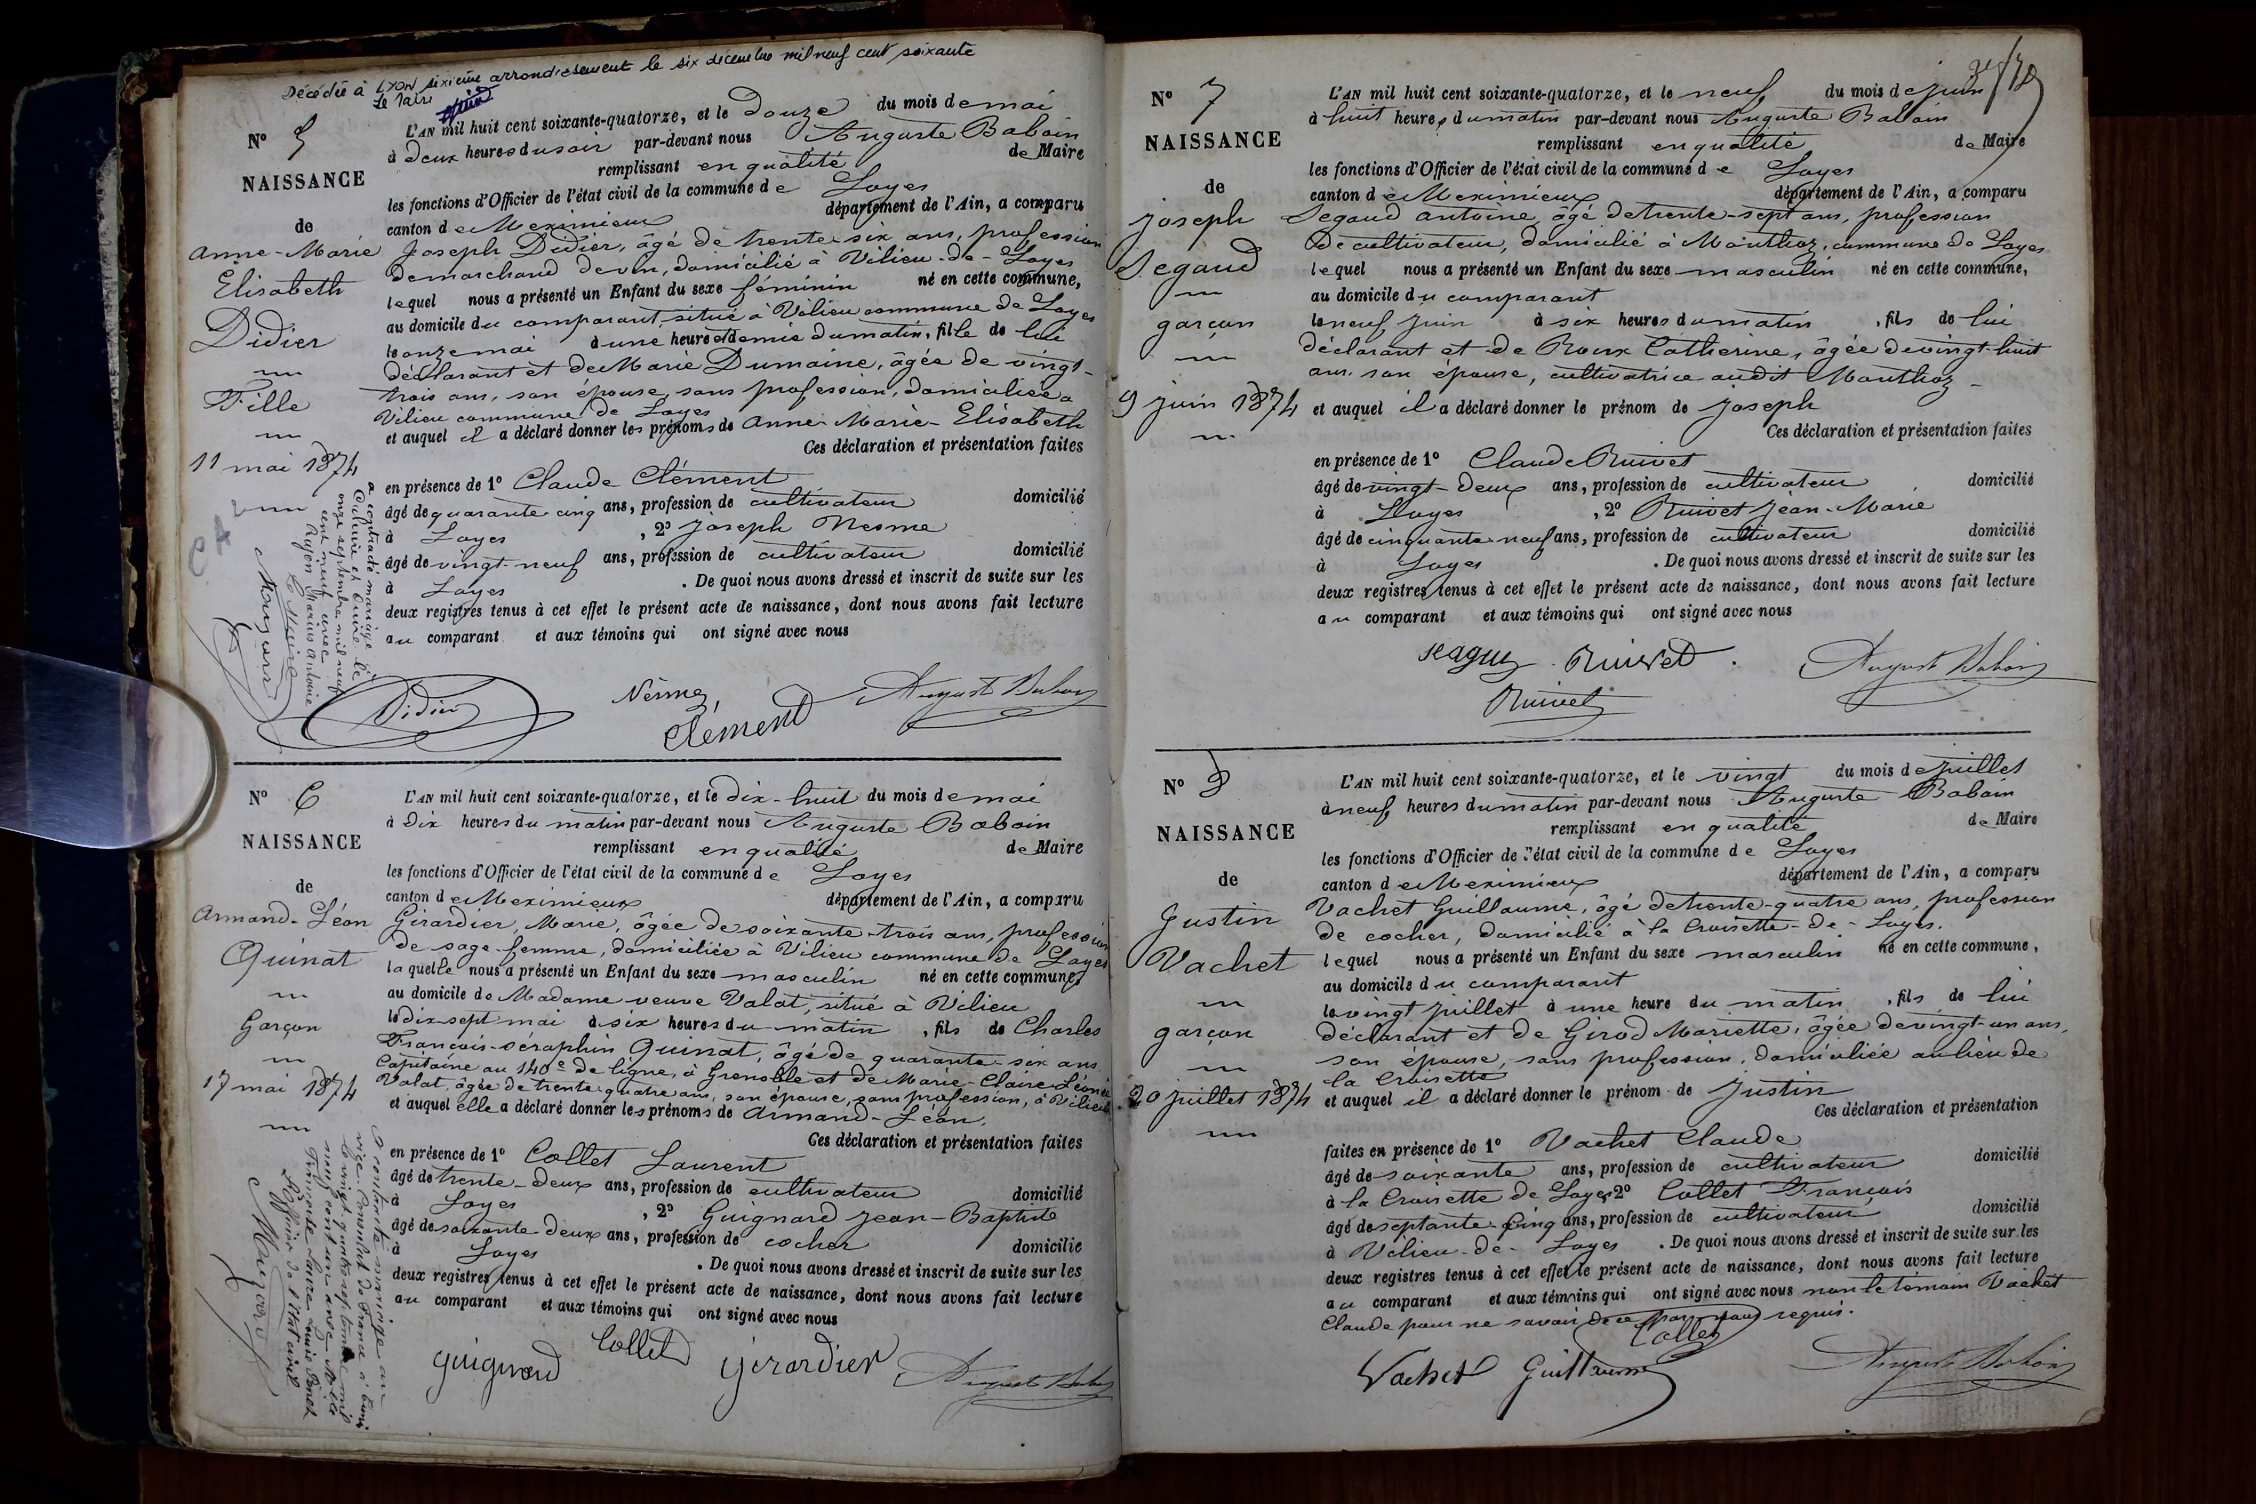 Décédée à LYON sixième arrondissement le six décembre mil neuf cent soixante
Le Maire
N° 5
NAISSANCE
de
Anne-Marie
Elisabeth
Didier
Fille
11 mai 1874
L'AN mil huit cent soixante-quatorze, et le douze du mois de mai
à deux heures du soir par-devant nous Auguste Baboin
remplissant en qualité de Maire
les fonctions d'Officier de l'état civil de la commune de Loyes
canton de Meximieux département de l'Ain, a comparu
Joseph Didier, âgé de trente-six ans, profession
de marchand de vin, domicilié à Vilieu-de-Loyes
lequel nous a présenté un Enfant du sexe féminin né en cette commune,
au domicile du comparant, situé à Vilieu commune de Loyes
le onze mai à une heure et demie du matin, fille de lui
déclarant et de Marie Dumaine, âgée de vingt-
trois ans, son épouse sans profession, domiciliée à
Vilieu commune de Loyes
et auquel il a déclaré donner les prénoms de Anne-Marie-Elisabeth
Ces déclaration et présentation faites
en présence de 1° Claude Clément
âgé de quarante-cinq ans, profession de cultivateur domicilié
à Loyes, 2° Joseph Nesme
âgé de vingt-neuf ans, profession de cultivateur domicilié
à Loyes. De quoi nous avons dressé et inscrit de suite sur les
deux registres tenus à cet effet le présent acte de naissance, dont nous avons fait lecture
au comparant et aux témoins qui ont signé avec nous
a contracté mariage à
Caluire et Cuire le
onze septembre mil neuf
cent neuf avec
Rajon Marius Antoine
Le Maire
Didier
Nesme
Clément
August Baboin
N° 6
NAISSANCE
de
Armand-Léon
Quinat
Garçon
17 mai 1874
L'AN mil huit cent soixante-quatorze, et le dix-huit du mois de mai
à dix heures du matin par-devant nous Auguste Baboin
remplissant en qualité de Maire
les fonctions d'Officier de l'état civil de la commune de Loyes
canton de Meximieux département de l'Ain, a comparu
Girardier, Marie, âgée de soixante-trois ans, profession
de sage-femme, domiciliée à Vilieu commune de Loyes
laquelle nous a présenté un Enfant du sexe masculin né en cette commune,
au domicile de Madame veuve Valat, situé à Vilieu
le dix-sept mai à six heures du matin, fils de Charles
François-séraphin Quinat, âgé de quarante-six ans
Capitaine au 140e de ligne, à Grenoble et de Marie-Claire-Léonie
Valat, âgée de trente-quatre ans, son épouse, sans profession, à Vilieu
et auquel elle a déclaré donner les prénoms de Armand-Léon.
Ces déclaration et présentation faites
en présence de 1° Collet Laurent
âgé de trente-deux ans, profession de cultivateur domicilié
à Loyes, 2° Guignard Jean-Baptiste
âgé de soixante-deux ans, profession de cocher domicilié
à Loyes. De quoi nous avons dressé et inscrit de suite sur les
deux registres tenus à cet effet le présent acte de naissance, dont nous avons fait lecture
au comparant et aux témoins qui ont signé avec nous
a contracté mariage au
vice-Consulat de France à
le vingt quatre septembre mil
neuf cent un avec
Laure Louise
L'officier de l'Etat civil
guignard
Collet
girardier
August Baboin
N° 7
NAISSANCE
de
Joseph
Segaud
garçon
9 juin 1874
L'AN mil huit cent soixante-quatorze, et le neuf du mois de juin
à huit heures du matin par-devant nous Auguste Baboin
remplissant en qualité de Maire
les fonctions d'Officier de l'état civil de la commune de Loyes
canton de Meximieux département de l'Ain, a comparu
Segaud antoine, âgé de trente-sept ans, profession
de cultivateur, domicilié à Monthoz, commune de Loyes
lequel nous a présenté un Enfant du sexe masculin né en cette commune,
au domicile du comparant
le neuf juin à six heures du matin, fils de lui
déclarant et de Roux Catherine, âgée de vingt-huit
ans, son épouse, cultivatrice audit Monthoz
et auquel il a déclaré donner le prénom de Joseph
Ces déclaration et présentation faites
en présence de 1° Claude Ruivet
âgé de vingt-deux ans, profession de cultivateur domicilié
à Loyes, 2° Ruivet Jean-Marie
âgé de cinquante-neuf ans, profession de cultivateur domicilié
à Loyes. De quoi nous avons dressé et inscrit de suite sur les
deux registres tenus à cet effet le présent acte de naissance, dont nous avons fait lecture
au comparant et aux témoins qui ont signé avec nous
Ruivet
Ruivet
August Baboin
N° 8
NAISSANCE
de
Justin
Vachet
garçon
20 juillet 1874
L'AN mil huit cent soixante-quatorze, et le vingt du mois de juillet
à neuf heures du matin par-devant nous Auguste Baboin
remplissant en qualité de Maire
les fonctions d'Officier de l'état civil de la commune de Loyes
canton de Meximieux département de l'Ain, a comparu
Vachet Guillaume, âgé de trente-quatre ans, profession
de cocher, domicilié à la Croisette-de-Loyes.
lequel nous a présenté un Enfant du sexe masculin né en cette commune,
au domicile du comparant
le vingt juillet à une heure du matin, fils de lui
déclarant et de Girod Mariette, âgée de vingt-un ans,
son épouse, sans profession, domiciliée au lieu de
la Croisette
et auquel il a déclaré donner le prénom de Justin
Ces déclaration et présentation
faites en présence de 1° Vachet Claude
âgé de soixante ans, profession de cultivateur domicilié
à la Croisette de Loyes 2° Collet François
âgé de septante-cinq ans, profession de cultivateur domicilié
à Vilieu-de-Loyes. De quoi nous avons dressé et inscrit de suite sur les
deux registres tenus à cet effet le présent acte de naissance, dont nous avons fait lecture
au comparant et aux témoins qui ont signé avec nous non le témoin Vachet
Claude pour ne savoir de ce par nous requis.
Collet
Vachet Guillaume
August Baboin